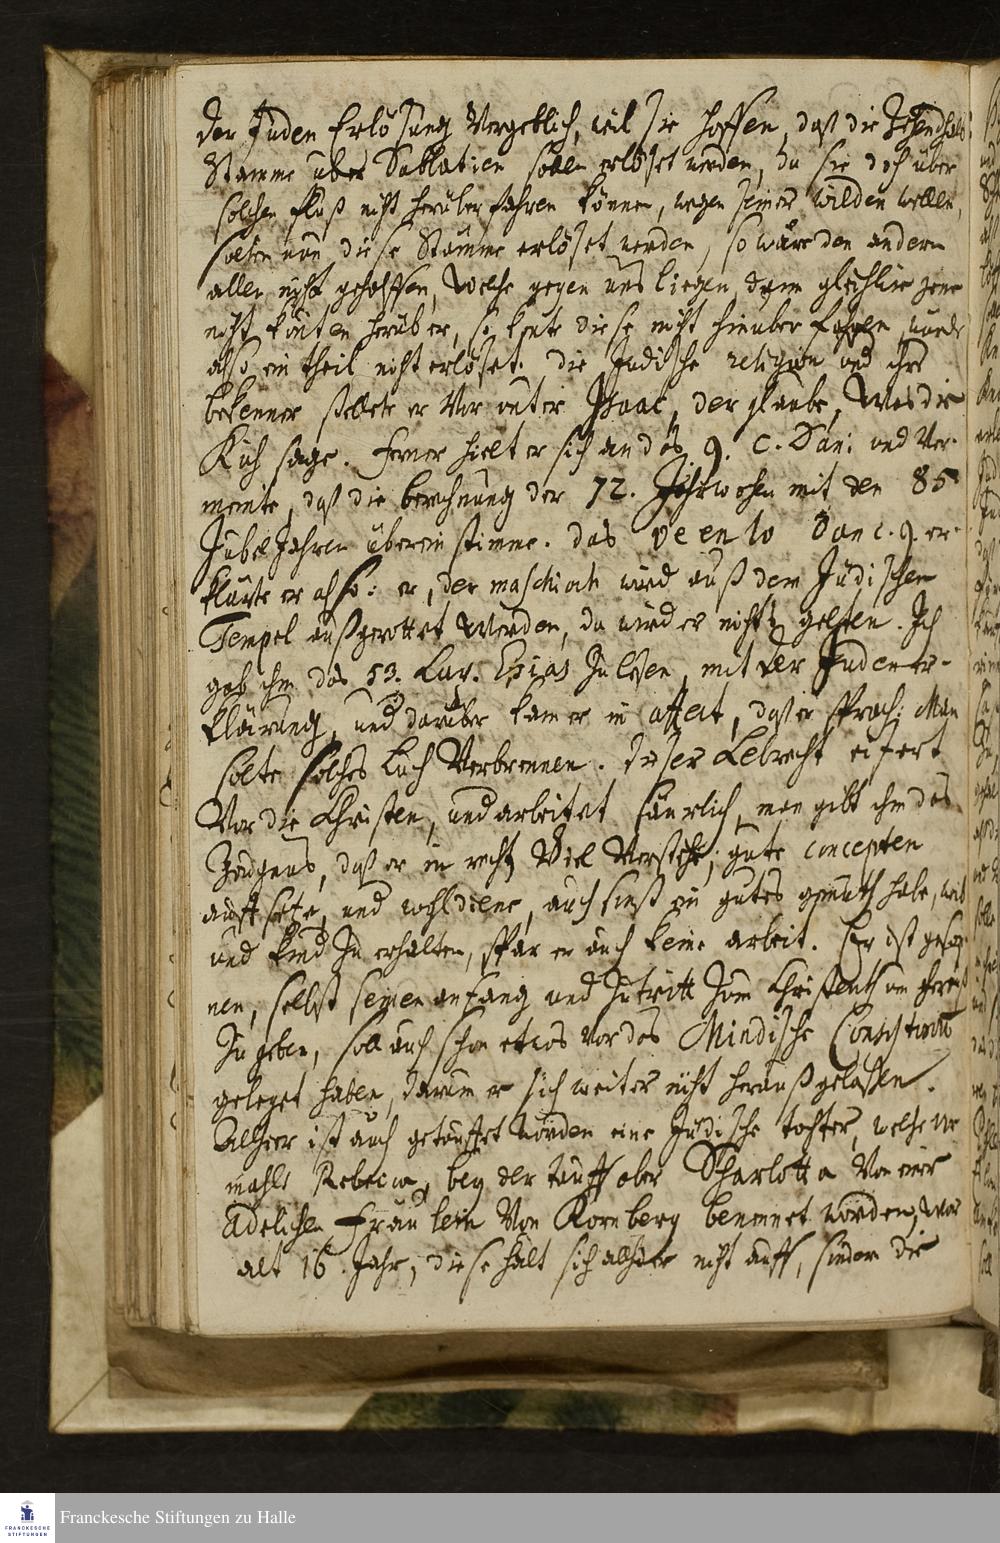 der Juden Erlösung Vergeblich, weil sie hoffen, daß die Zehendhalb
Stamme uber Sabbatien sollen erlöset werden, da sie doch über
solchen fluß nicht herüber fahren können, wegen seiner wilden wellen,
solten nun diese Stamme erlöset werden, so wäre den andern
allen nicht geholffen, Welche gegen uns liegen, denn gleichwie jene
nicht könten herüber, so könte diese nicht hinuber fahren, würde
also ein theil nicht erlöset. die Jüdische religion und ihre
bekenner stellete er Vor unter Isaac, der glaube, Was die
Kuh sage. Ferner hielt er sich an das 9. C. Dan: und Ver-
meinte, daß die berechnung der 72. Jahrwochen mit den 85
Jubel Jahren überein stimme. das veen lo Dan c. 9. er-
klärte er also: er, der maschiach wird auß dem Jüdischen
Tempel außgerottet Werden, da wird er nichts gelten. Ich
gab ihm das 53. Cap. Esias Zu lesen, mit der Juden er-
klärung, und darüber kam er in affect, daß er sprach: Man
solte solches buch Verbrennen. Dieser Lebrecht eifert
Vor die Christen, und arbeitet säuerlich, man gibt ihm das
Zeugnus, daß er in recht Viel Verstehe, gute concepten
auffsetze, und wohl diene, auch sonst ein gutes gemüth habe, weib
und kind Zu erhalten, spar er auch keine arbeit. Er ist geson-
nen, selbst seinen anfang und Zutritt Zum Christenthum herauß
Zu geben, soll auch schon etwas vor das Mindische Consistorium
geleget haben, darum er sich weiter nicht heraußgelassen.
Alhier ist auch getauffet worden eine Jüdische tochter, welche vor
mahls Rebecca, bey der tauff aber Scharlotta Von einer
Adelichen Fräulein Von Kornberg benennet worden, war
alt 16. Jahr, diese hält sich alhier nicht auff, sondern die
Franckesche Stiftungen zu Halle
FRANCKESCHE
STIFTUNGEN